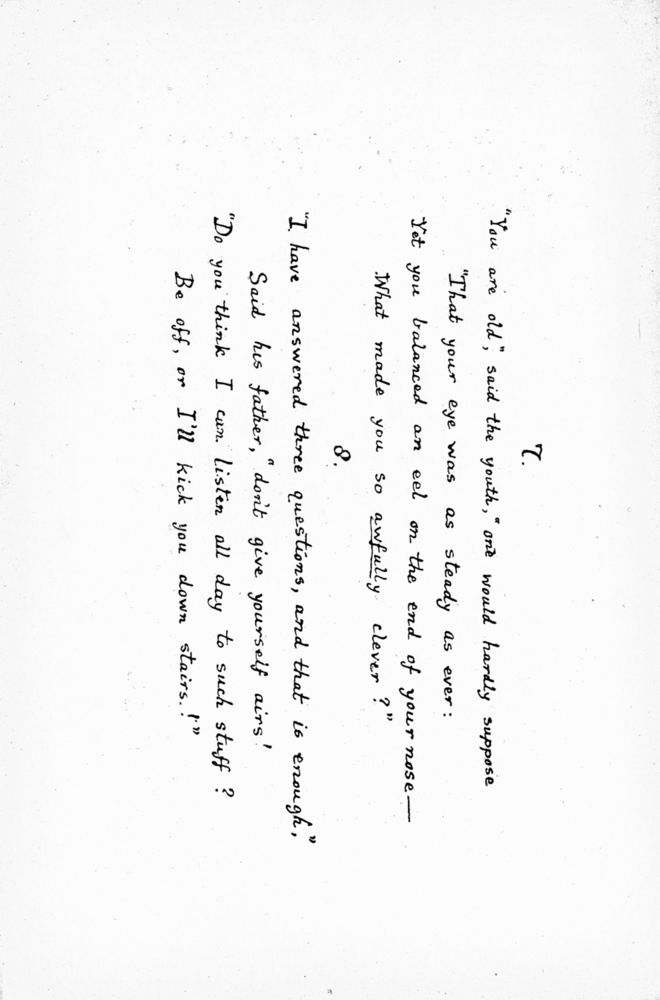 7.
"You are old," said the youth, "one would hardly suppose
"That your eye was as steady as ever:
Yet you balanced an eel on the end of your nose—
What made you so awfully clever?"
8.
"I have answered three questions, and that is enough,"
Said his father, "don't give yourself airs!
"Do you think I can listen all day to such stuff?
Be off, or I'll kick you down stairs.!"